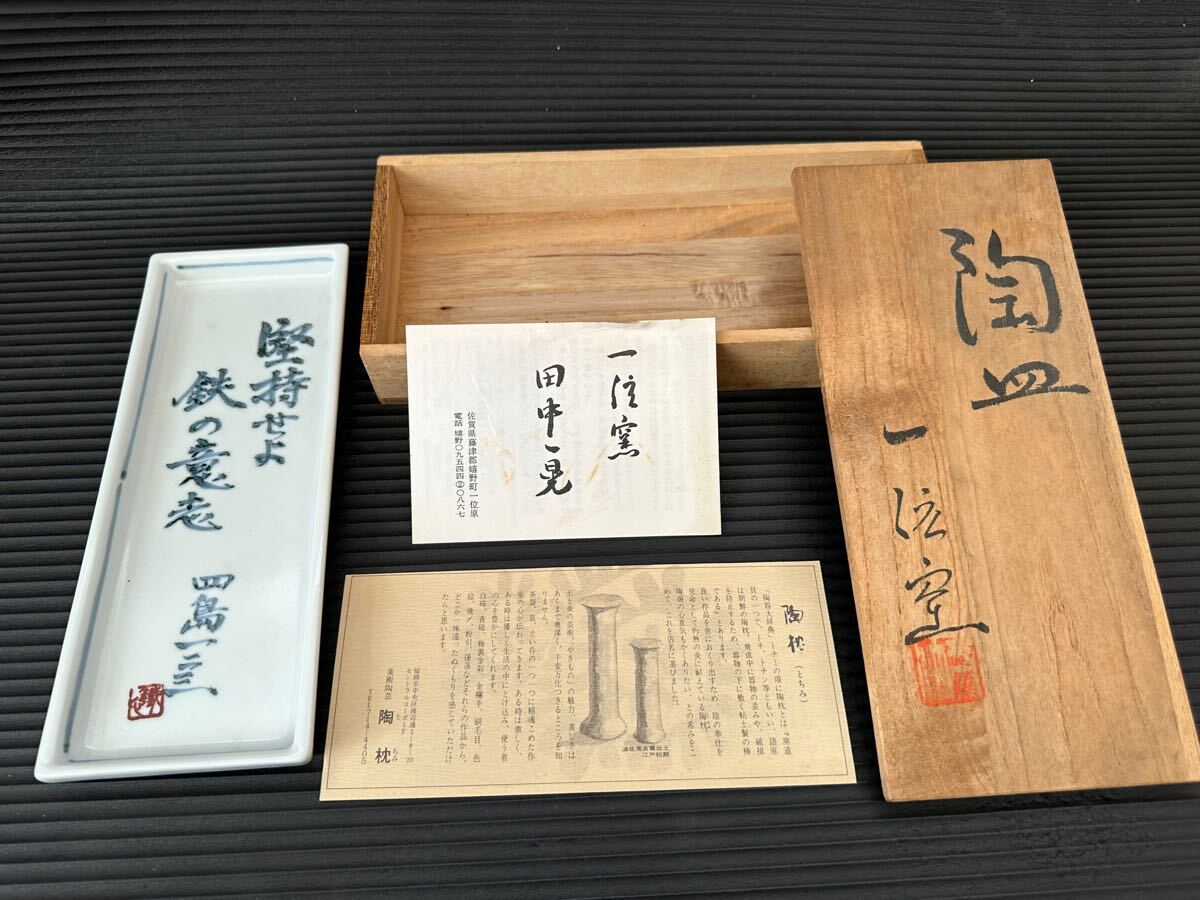 堅持せよ
鉄の意志
四島一二三
一位窯
田中一晃
佐賀県藤津郡嬉野町一位原
電話 嬉野〇九五四四②〇八六七
陶皿
一位窯
陶枕（とちみ）
陶器大辞典「トチミ」の項に陶枕とは『窯道
具の一つで、トチ、トチン等ともいい、語原
は朝鮮の陶枕。焼成中に器物の歪みや、破損
を防止するため、器物の下に敷く粘土製の棒
である』とあります。
良い作品を世におくり出すため、陰の奉仕を
使命として灼熱の炎に耐えている陶枕。
陶商の心意気もかくありたい、との希みをこ
めて、これを店名に選びました。
波佐見古窯出土
江戸初期
土と炎の芸術、「やきもの」の魅力、美しさは
あくまで奥深く、千変万化つきるところを知
りません。
茶盌、皿、ぐい呑の一つ一つに精魂こめた作
家の心が伝わってきます。ある時は激しく、
ある時は優しく生活の中にとけ込み、使う者
の心を豊かにしてくれます。
白磁、青磁、釉裏金彩、金襴手、刷毛目、色
絵、焼〆、粉引、掻落などそれらの作品から、
どこか一味違ったぬくもりを感じていただけ
たらと思います。
福岡市中央区渡辺通2-8-20
セントラルコーポードF
美術陶芸 陶枕
とちみ
TEL714-4405